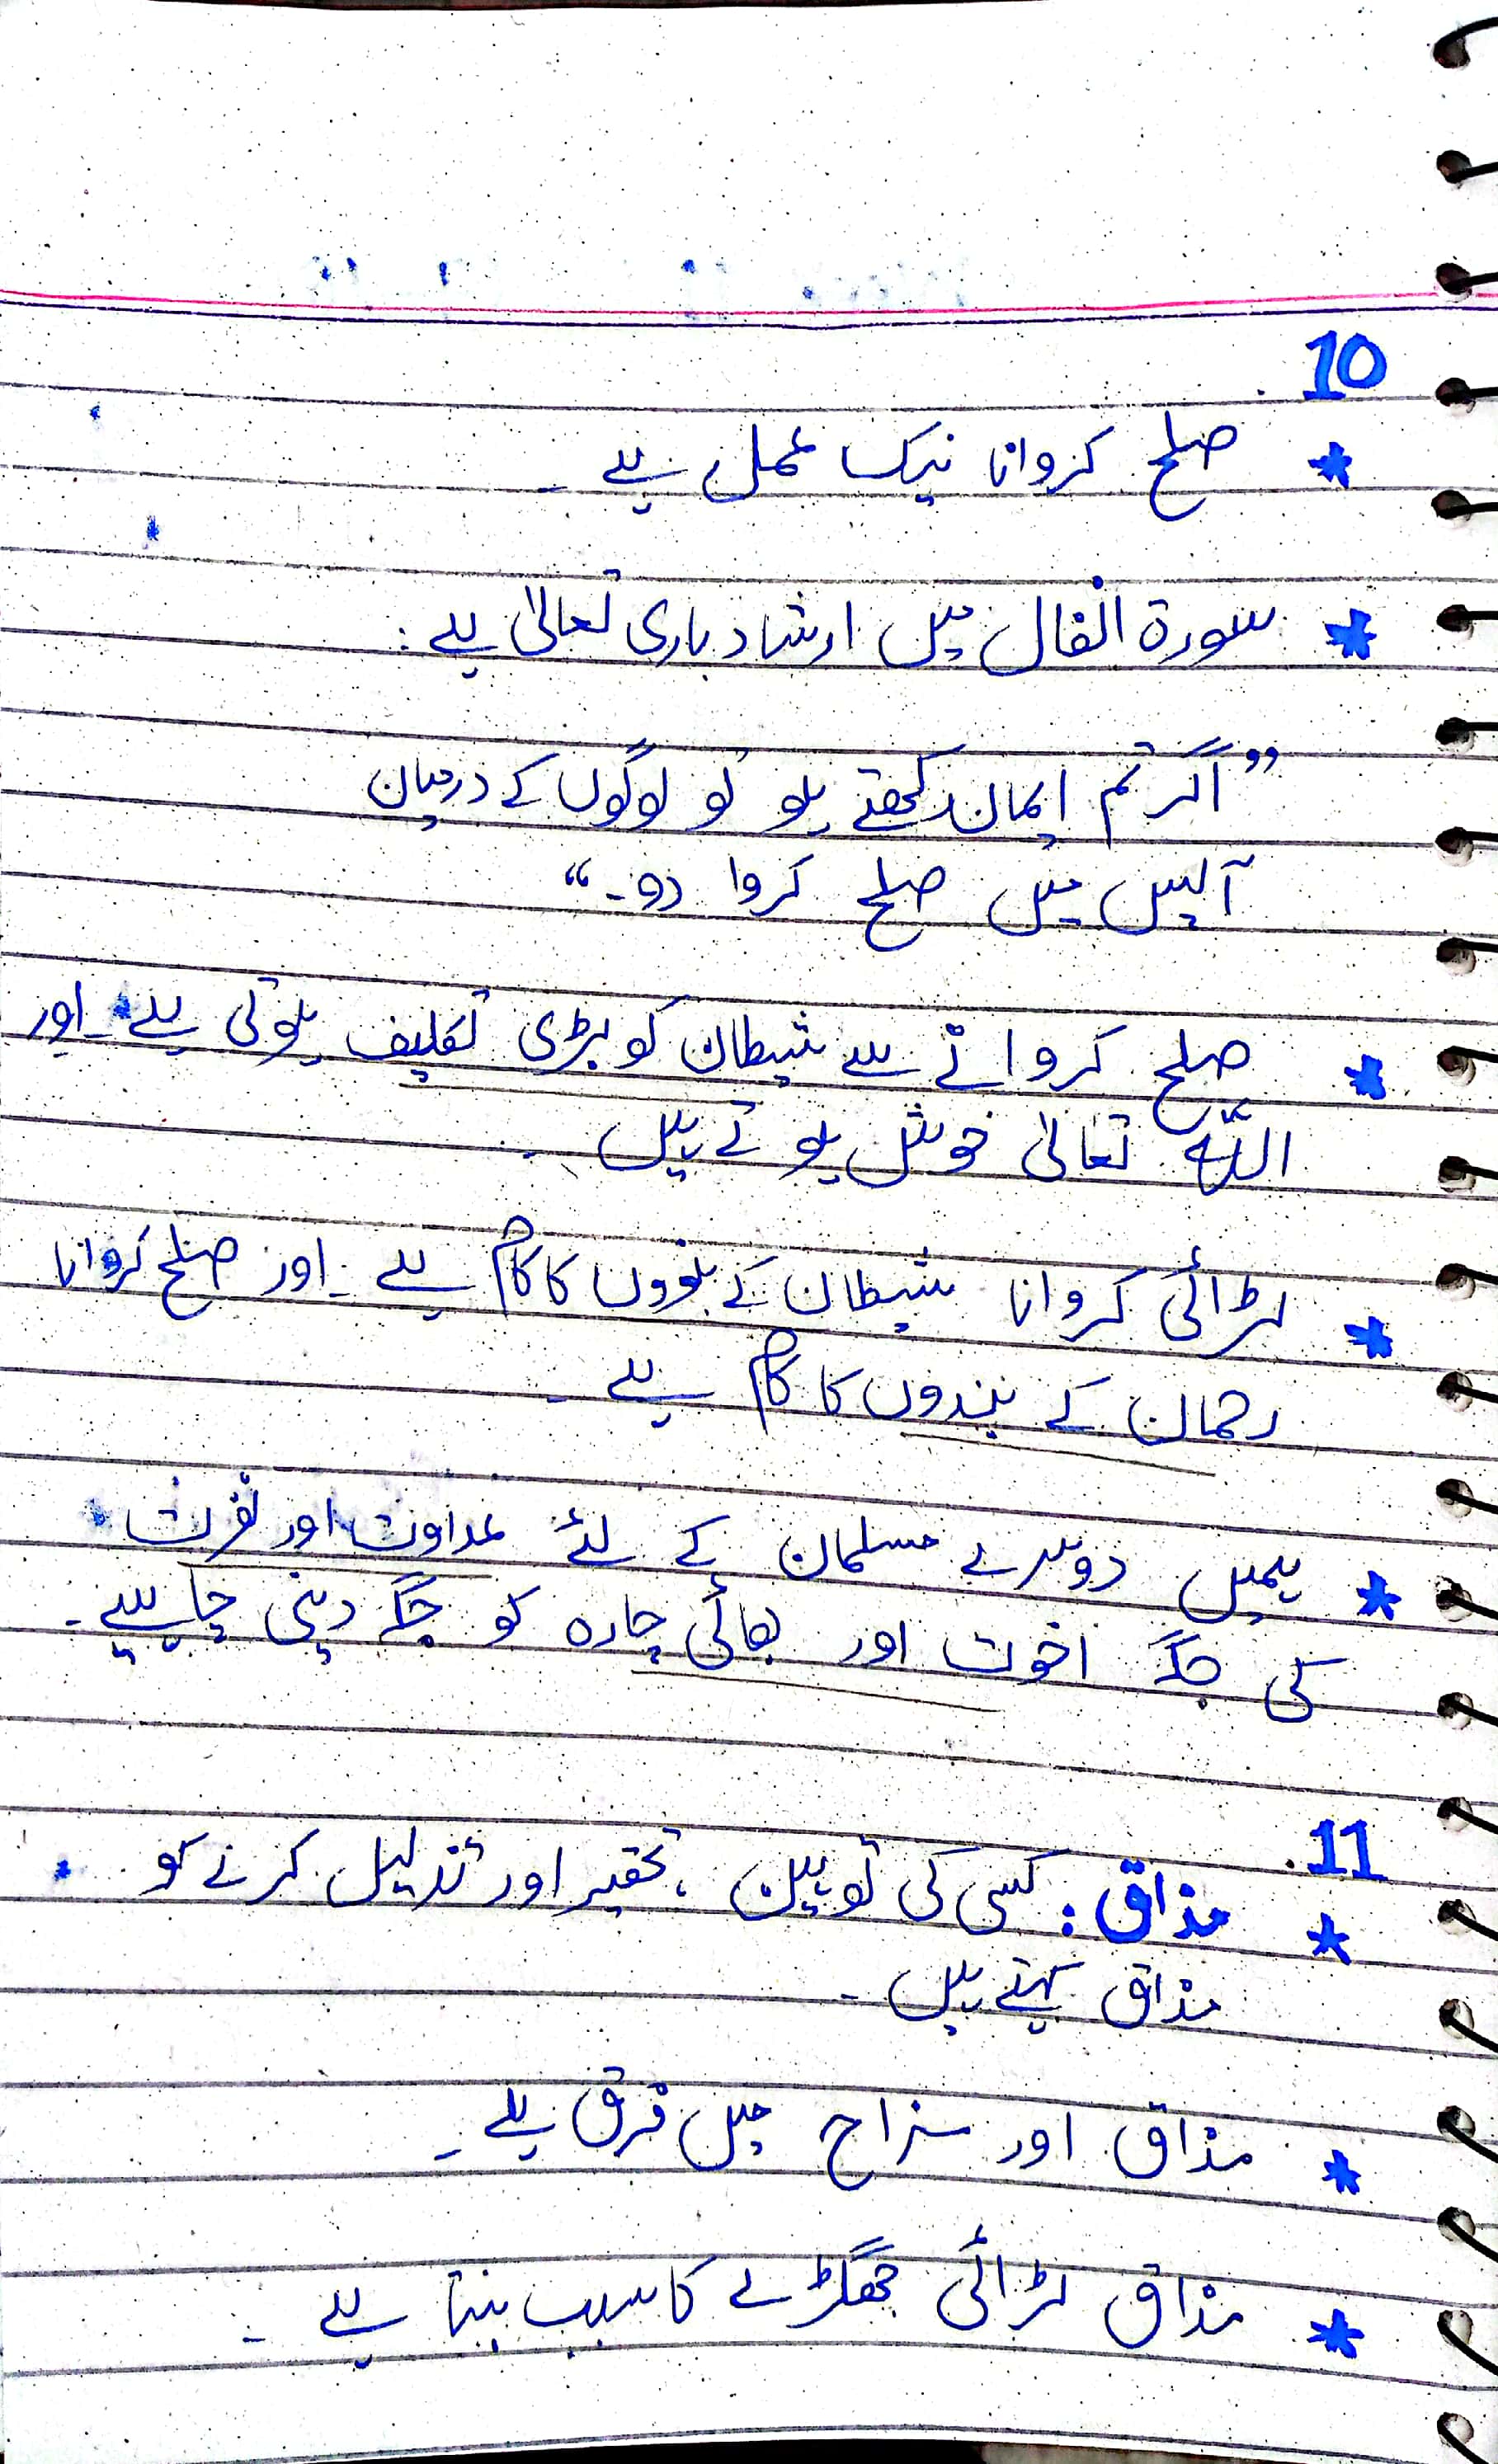 10
* صلح کروانا نیک عمل ہے ۔
* سورۃ انفال میں ارشاد باری تعالیٰ ہے :
”اگر تم ایمان رکھتے ہو تو لوگوں کے درمیان
آپس میں صلح کروا دو۔“
* صلح کروانے سے شیطان کو بڑی تکلیف ہوتی ہے۔ اور
اللہ تعالیٰ خوش ہوتے ہیں ۔
* لڑائی کروانا شیطان کے بندوں کا کام ہے ۔ اور صلح کروانا
رحمان کے بندوں کا کام ہے ۔
* ہمیں دوسرے مسلمان کے لئے عداوت اور نفرت
کی جگہ اخوت اور بھائی چارہ کو جگہ دینی چاہیے۔
11.
* مذاق : کسی کی توہین ، تحقیر اور تذلیل کرنے کو
مذاق کہتے ہیں ۔
* مذاق اور مزاح میں فرق ہے ۔
* مذاق لڑائی جھگڑے کا سبب بنتا ہے ۔